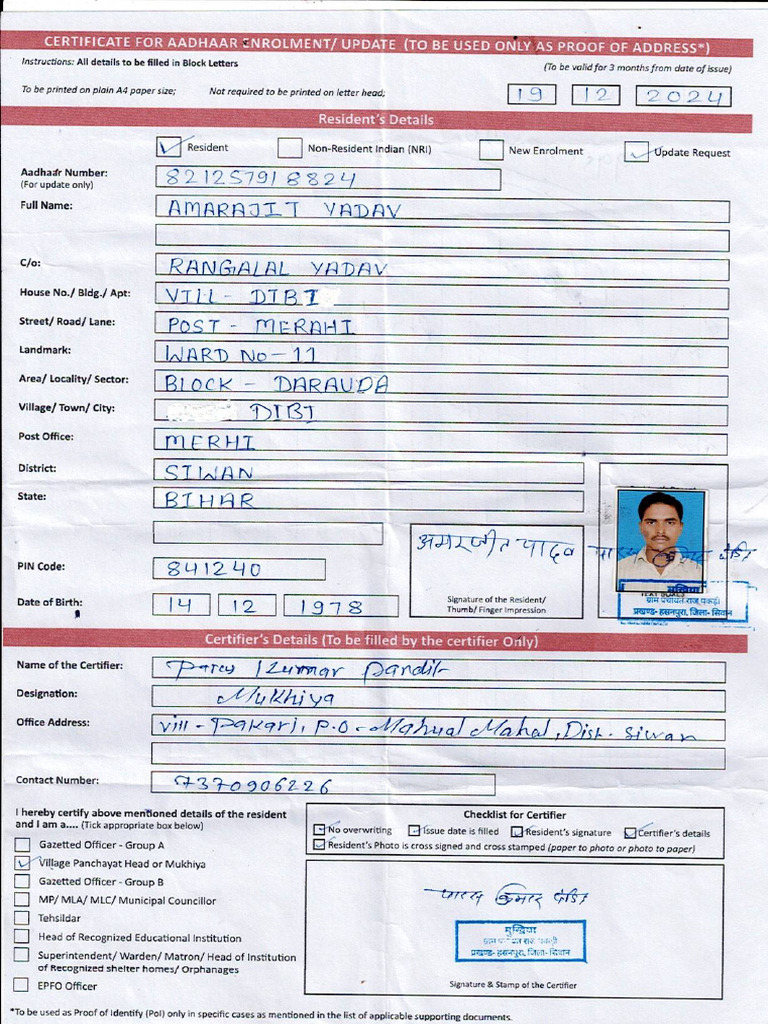 CERTIFICATE FOR AADHAAR ENROLMENT/ UPDATE (TO BE USED ONLY AS PROOF OF ADDRESS*)
Instructions: All details to be filled in Block Letters
(To be valid for 3 months from date of issue)
To be printed on plain A4 paper size; Not required to be printed on letter head;
19 12 2024
Resident's Details
Resident Non-Resident Indian (NRI) New Enrolment Update Request
Aadhaar Number: 821257918824
(For update only)
Full Name: AMARAJIT YADAV
C/o: RANGALAL YADAV
House No./ Bldg./ Apt: VILL- DIBI
Street/ Road/ Lane: POST - MERAHI
Landmark: WARD NO-11
Area/ Locality/ Sector: BLOCK - DARAUDA
Village/ Town/ City: DIBI
Post Office: MERHI
District: SIWAN
State: BIHAR
अमरजीत यादव
PIN Code: 841240
Signature of the Resident/
Thumb/ Finger Impression
मुखिया
ग्राम पंचायत राज पकड़ी
प्रखण्ड- हसनपुरा, जिला- सिवान
Date of Birth: 14 12 1978
Certifier's Details (To be filled by the certifier Only)
Name of the Certifier: Kumar Pandit
Designation: Mukhiya
Office Address: Vill - Pakari, P.O - Mahual Mahal, Dist- Siwan
Contact Number: 7370906226
I hereby certify above mentioned details of the resident
and I am a.... (Tick appropriate box below)
Gazetted Officer - Group A
Village Panchayat Head or Mukhiya
Gazetted Officer - Group B
MP/ MLA/ MLC/ Municipal Councillor
Tehsildar
Head of Recognized Educational Institution
Superintendent/ Warden/ Matron/ Head of Institution
of Recognized shelter homes/ Orphanages
EPFO Officer
Checklist for Certifier
No overwriting Issue date is filled Resident's signature Certifier's details
Resident's Photo is cross signed and cross stamped (paper to photo or photo to paper)
कुमार
मुखिया
ग्राम पंचायत राज पकड़ी
प्रखण्ड- हसनपुरा, जिला- सिवान
Signature & Stamp of the Certifier
*To be used as Proof of Identify (PoI) only in specific cases as mentioned in the list of applicable supporting documents.